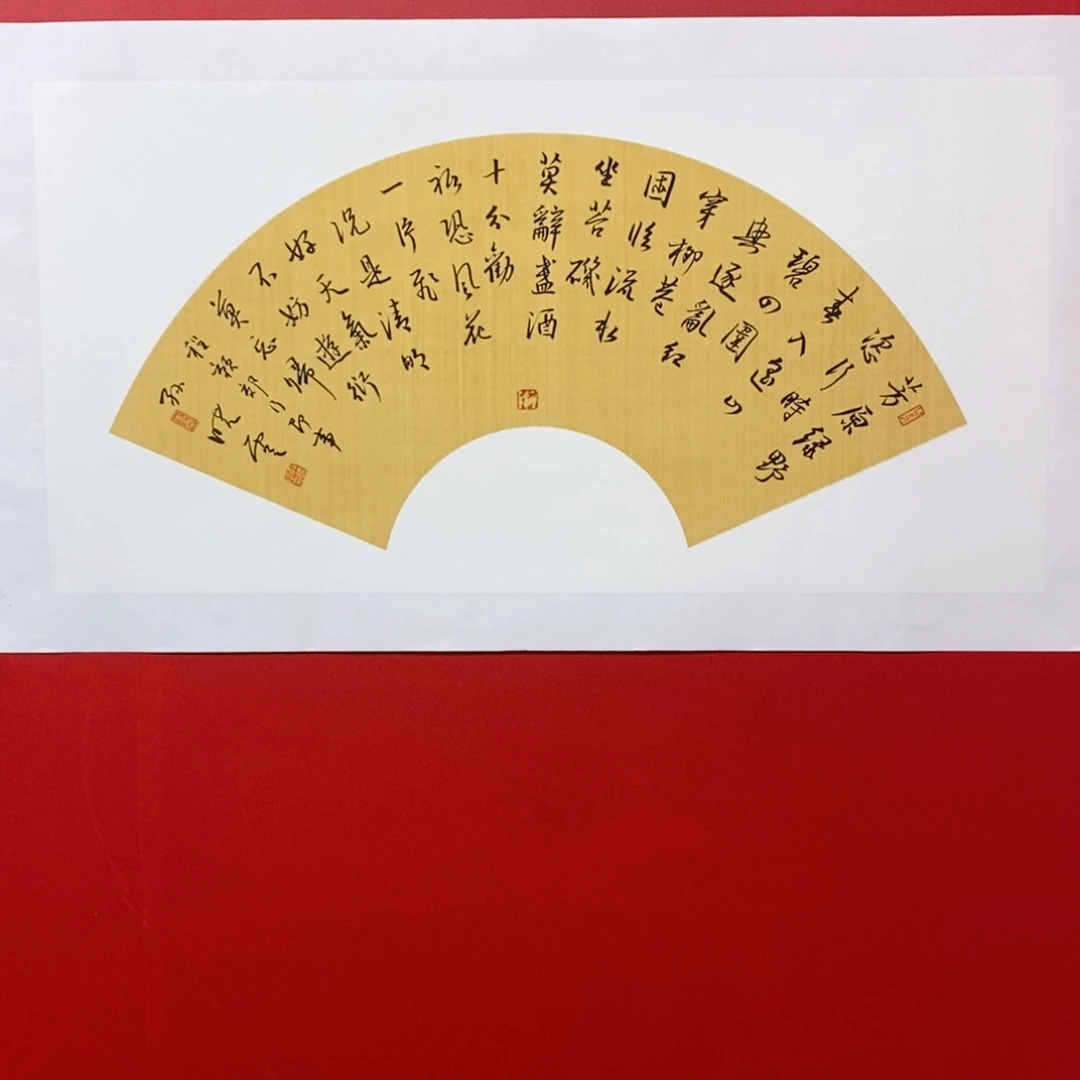 芳原綠野
恣行時
春入遙山
碧四圍
興逐亂紅
穿柳巷
困臨流水
坐苔磯
莫辭盞酒
十分勸
祇恐風花
一片飛
況是清明
好天氣
不妨遊衍
莫忘歸
程顥郊行即事
孫曉雲